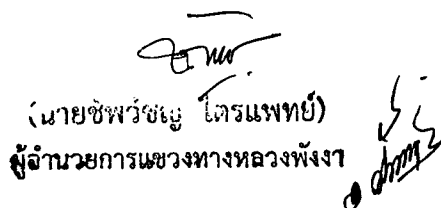 (นายชัพวิชญ ไตรแพทย์)
ผู้อำนวยการแขวงทางหลวงพังงา